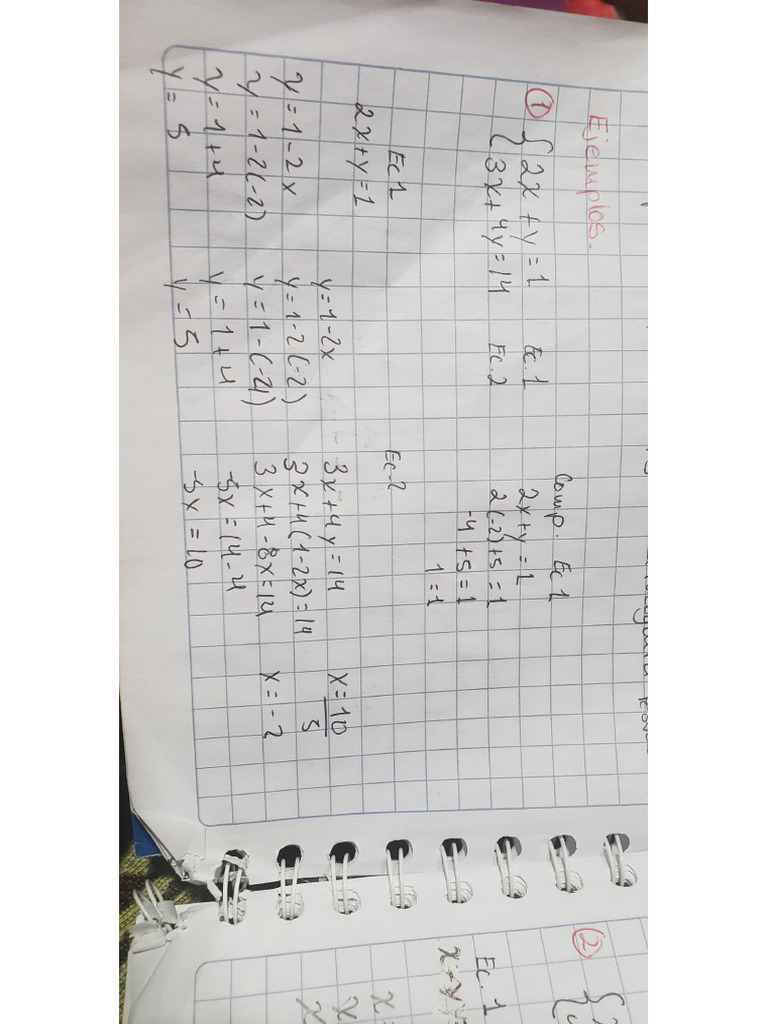 Ejemplos.
① { 2x + y = 1 Ec. 1
3x + 4y = 14 Ec. 2
Comp. Ec 1
2x + y = 1
2(-2) + 5 = 1
-4 + 5 = 1
1 = 1
Ec 1
2x + y = 1
y = 1 - 2x
y = 1 - 2(-2)
y = 1 + 4
y = 5
y = 1 - 2x
y = 1 - 2(-2)
y = 1 - (-4)
y = 1 + 4
y = 5
Ec. 2
3x + 4y = 14
3x + 4(1 - 2x) = 14
3x + 4 - 8x = 14
-5x = 14 - 4
-5x = 10
x = 10
5
x = -2
② {
Ec. 1
x + y